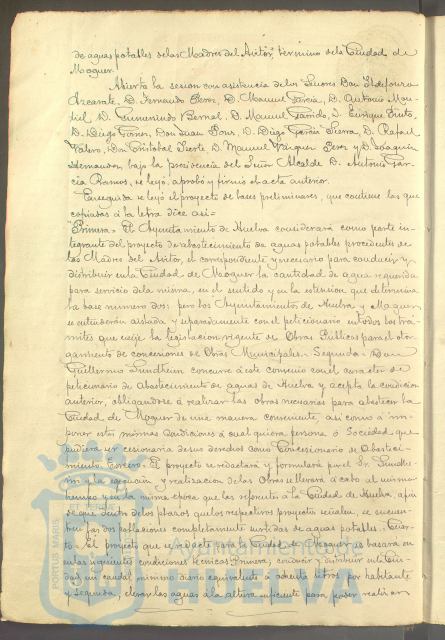 de aguas potables de las Madres del Avitor, término de la Ciudad de
Moguer.
Abierta la sesion con asistencia de los Señores Don Ildefonso
Arcasate, D. Fernando Perez, D. Manuel Garcia, D. Antonio Mon-
tiel, D. Gumersindo Bernal, D. Manuel Garrido, D. Enrique Pinto,
D. Diego Don Juan D. Diego Garcia Sierra, D. Rafael
Valero, Don Cristobal D. Manuel Vazquez Perez y D. Joaquin
Hernandez, bajo la presidencia del Señor Alcalde D. Antonio Gar-
cia Ramos, se leyó, aprobó y firmó el acta anterior.
Enseguida se leyó el proyecto de bases preliminares, que contiene las que
copiadas á la letra dice asi=
"Primera= El Ayuntamiento de Huelva considerará como parte in-
tegrante del proyecto de abastecimiento de aguas potable procedente de
las Madres del Avitor, el correspondiente y necesario para conducir y
distribuir en la Ciudad de Moguer la cantidad de agua requerida
para servicio de la misma, en el sentido y en la estension que determina
la base numero dos; pero los Ayuntamientos de Huelva y Moguer
se entenderán aislada y separadamente con el peticionario en todos los trá-
mites que exije la legislacion vigente de Obras Publicas para el otor-
gamiento de concesiones de Obras Municipales.= Segunda= Don
Guillermo Sundheim concurre á este convenio con el caracter de
peticionario de Abastecimiento de aguas de Huelva y acepta la condicion
anterior, obligandose á realizar las obras necesarias para abastecer la
Ciudad de Moguer de una manera conveniente, asi como á im-
poner estas mismas condiciones á cualquiera persona ó Sociedad que
pudiera ser cesionaria de sus derechos como Concesionario de Abasteci-
miento. Tercera= El proyecto se redactará y formulará por el Sr. Sundhe-
im y la ejecucion y realizacion de las Obras se llevará á cabo al mismo
tiempo y en la misma epoca que las referentes á la Ciudad de Huelva, afin
de que dentro de los plazos que los respectivos proyectos señalen, se encuen-
tren las dos poblaciones completamente surtidas de aguas potables. Cuar-
ta= El proyecto que se redacte para la Ciudad de Moguer se basará en
en las siguientes condiciones técnicas: Primera, conducir y distribuir en la Ciu-
dad un caudal minimo diario equivalente á ochenta litros por habitante
y segunda, elevar las aguas á la altura suficiente para poder realizar
PORTUS MARIS
Ayuntamiento de
HUELVA